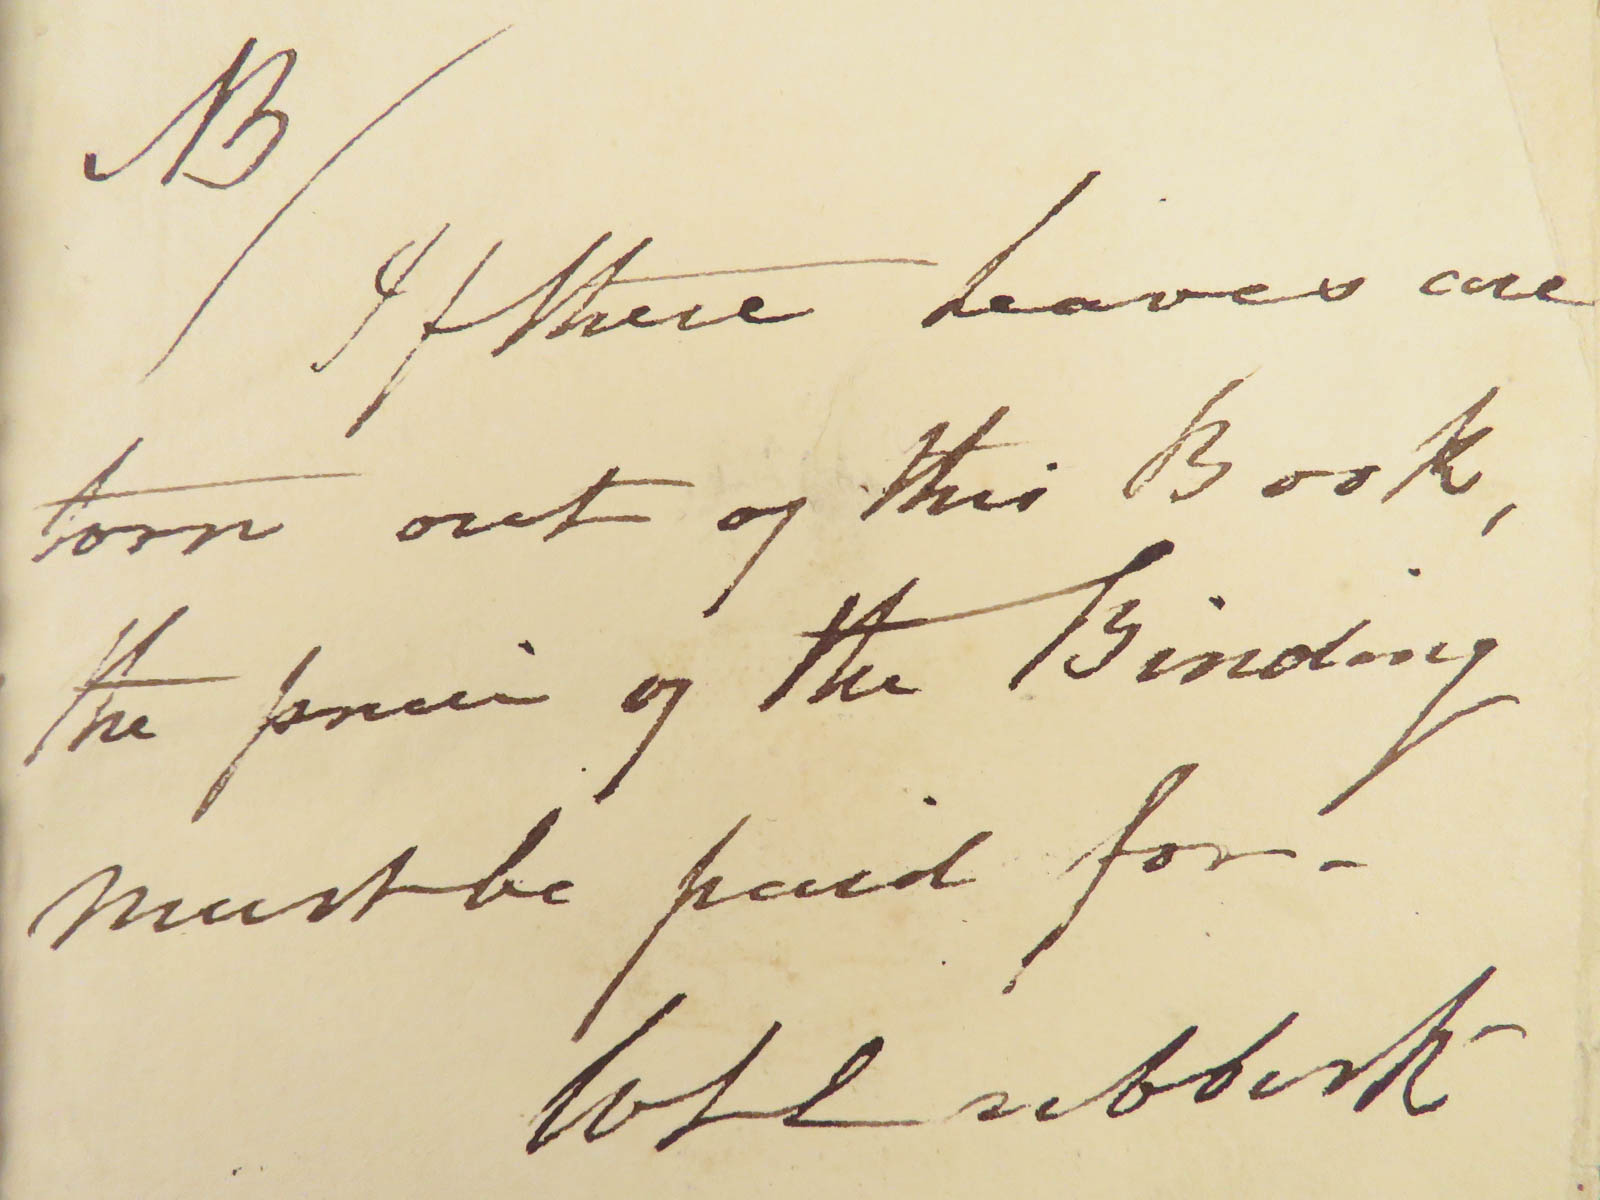 NB/
If there leaves are
torn out of this Book,
the price of the Binding
must be paid for -